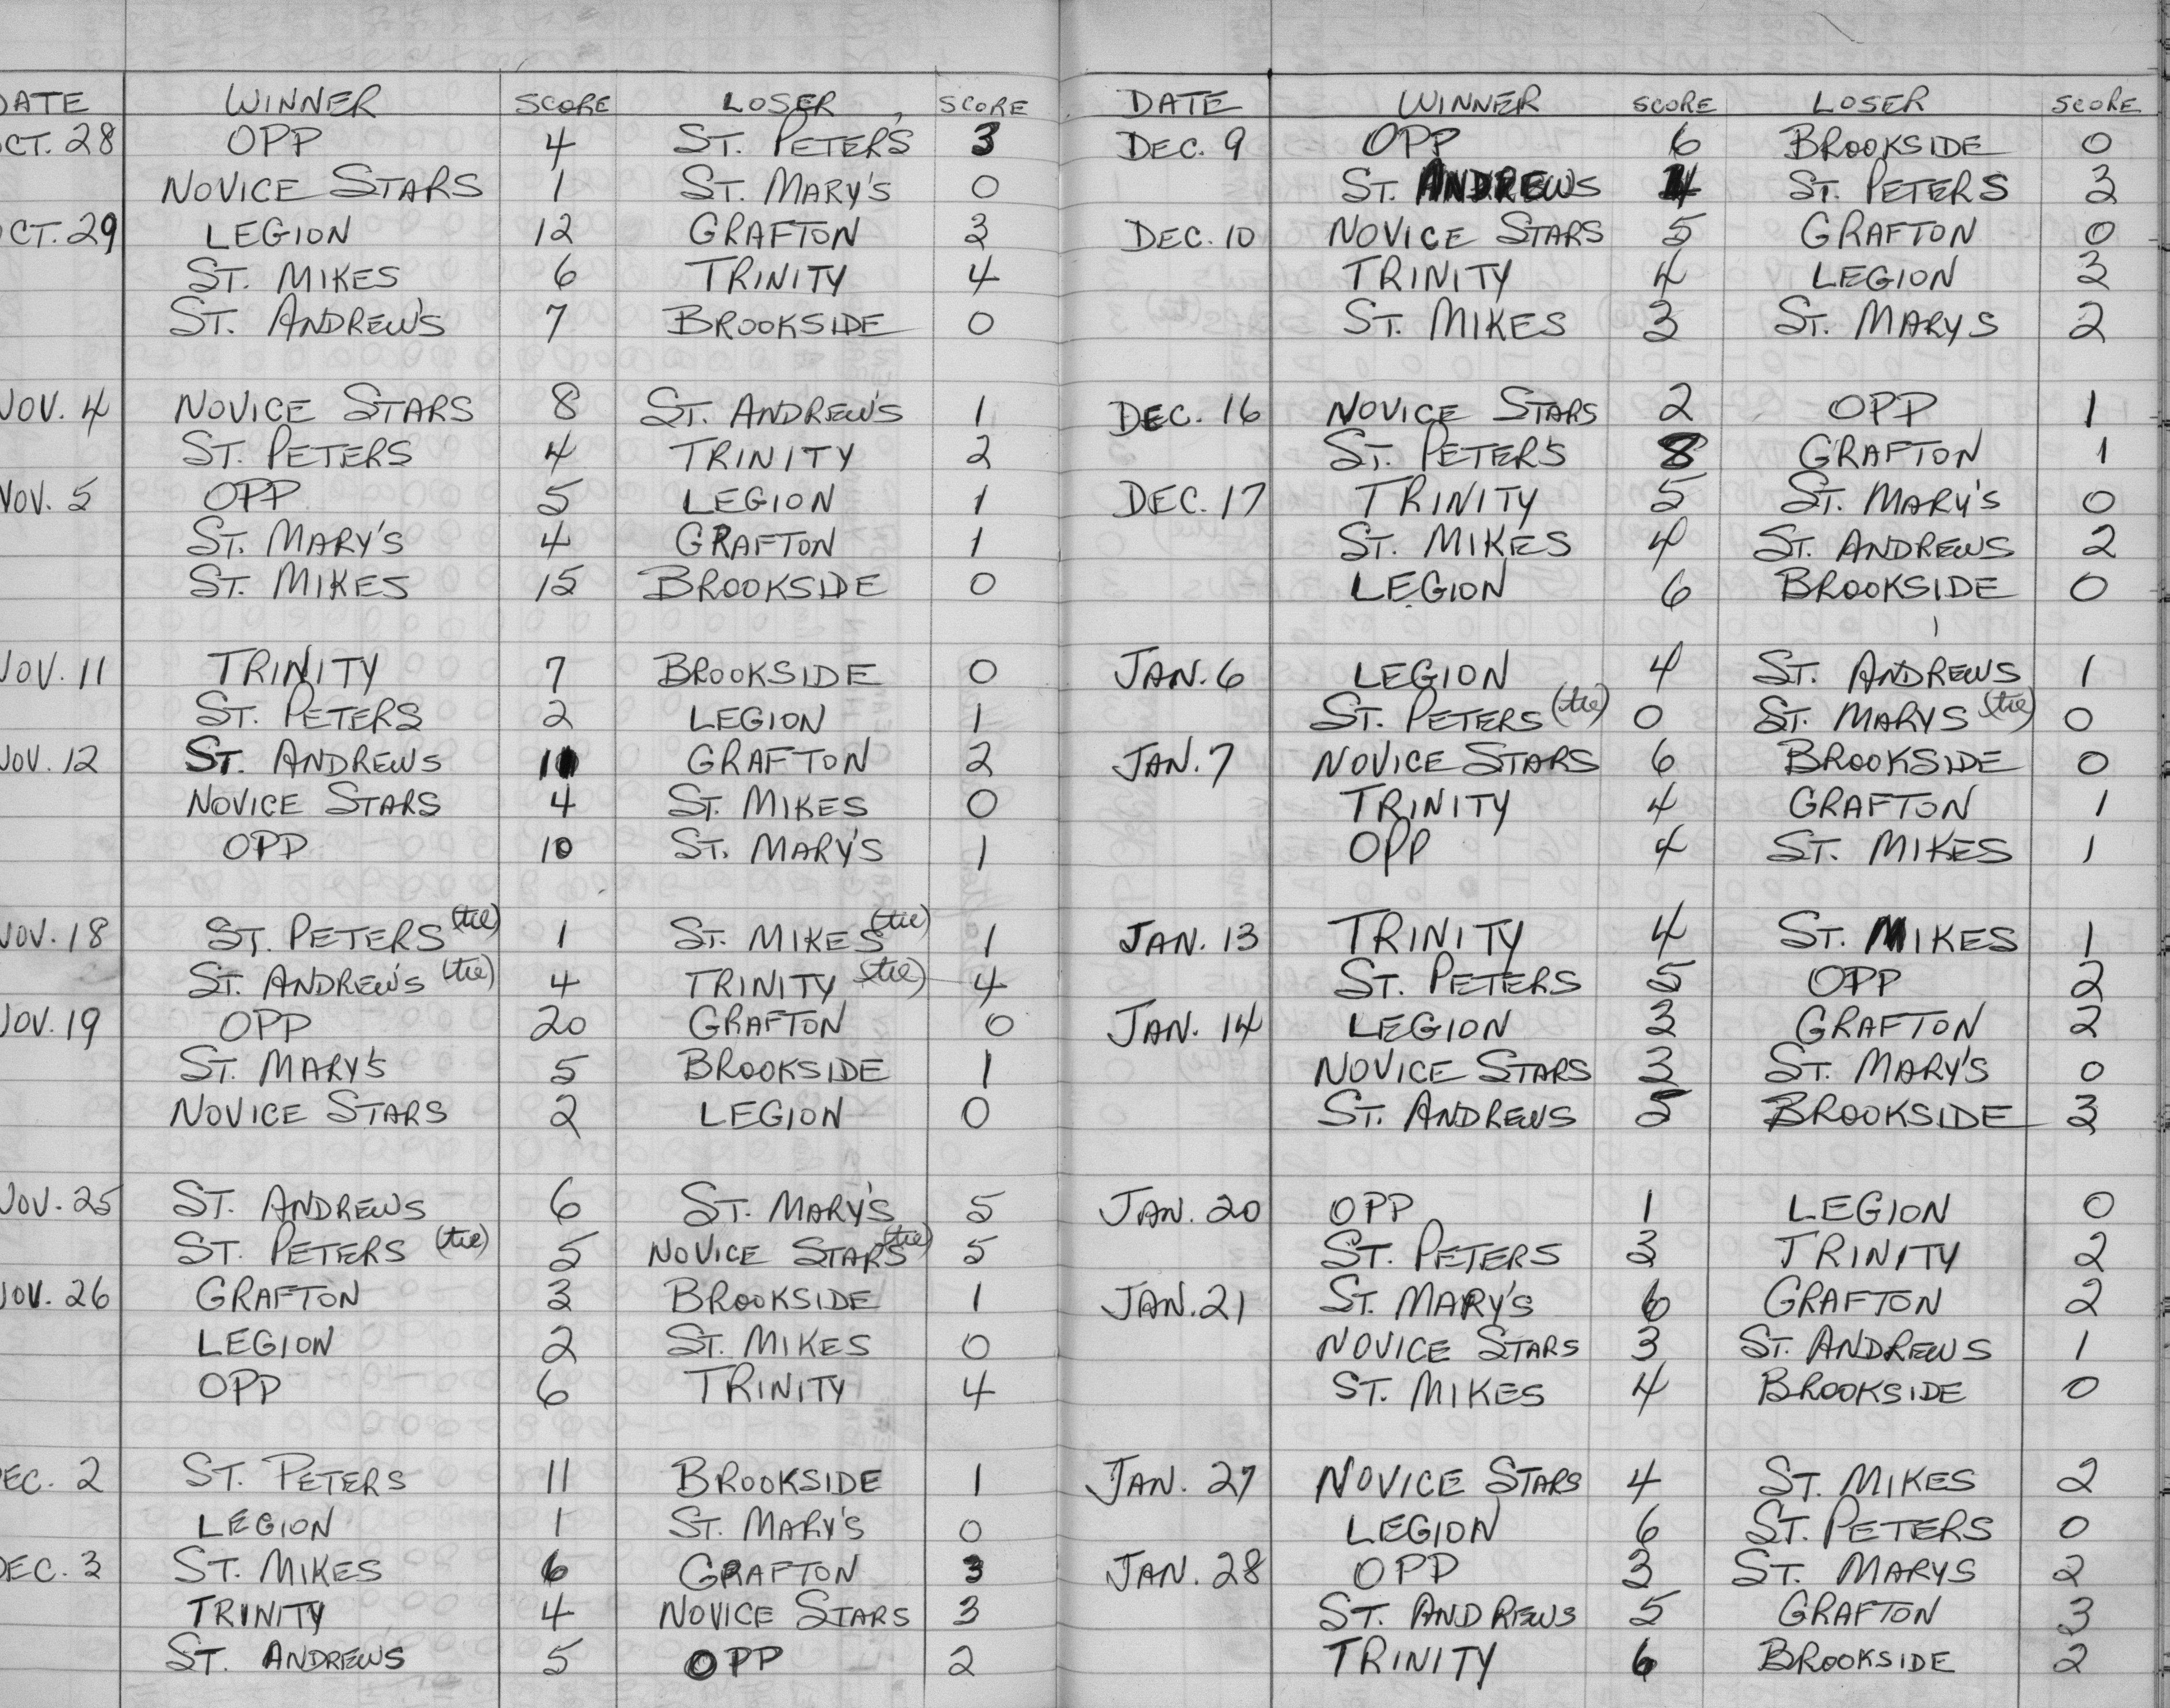 DATE WINNER SCORE LOSER SCORE
OCT. 28 OPP 4 ST. PETER'S 3
NOVICE STARS 1 ST. MARY'S 0
OCT. 29 LEGION 12 GRAFTON 3
ST. MIKES 6 TRINITY 4
ST. ANDREW'S 7 BROOKSIDE 0
NOV. 4 NOVICE STARS 8 ST. ANDREW'S 1
ST. PETERS 4 TRINITY 2
NOV. 5 OPP 5 LEGION 1
ST. MARY'S 4 GRAFTON 1
ST. MIKES 15 BROOKSIDE 0
NOV. 11 TRINITY 7 BROOKSIDE 0
ST. PETERS 2 LEGION 1
NOV. 12 ST. ANDREWS GRAFTON 2
NOVICE STARS 4 ST. MIKES 0
OPP 10 ST. MARY'S 1
NOV. 18 ST. PETERS (tie) 1 ST. MIKES (tie) 1
ST. ANDREW'S (tie) 4 TRINITY (tie) 4
NOV. 19 OPP 20 GRAFTON 0
ST. MARY'S 5 BROOKSIDE 1
NOVICE STARS 2 LEGION 0
NOV. 25 ST. ANDREWS 6 ST. MARY'S 5
ST. PETERS (tie) 5 NOVICE STARS (tie) 5
NOV. 26 GRAFTON 3 BROOKSIDE 1
LEGION 2 ST. MIKES 0
OPP 6 TRINITY 4
DEC. 2 ST. PETERS 11 BROOKSIDE 1
LEGION 1 ST. MARY'S 0
DEC. 3 ST. MIKES 6 GRAFTON 3
TRINITY 4 NOVICE STARS 3
ST. ANDREWS 5 OPP 2
DATE WINNER SCORE LOSER SCORE
DEC. 9 OPP 6 BROOKSIDE 0
ST. ANDREWS 4 ST. PETERS 3
DEC. 10 NOVICE STARS 5 GRAFTON 0
TRINITY 4 LEGION 3
ST. MIKES 3 ST. MARYS 2
DEC. 16 NOVICE STARS 2 OPP 1
ST. PETER'S 8 GRAFTON 1
DEC. 17 TRINITY 5 ST. MARY'S 0
ST. MIKES 4 ST. ANDREWS 2
LEGION 6 BROOKSIDE 0
JAN. 6 LEGION 4 ST. ANDREWS 1
ST. PETERS (tie) 0 ST. MARYS (tie) 0
JAN. 7 NOVICE STARS 6 BROOKSIDE 0
TRINITY 4 GRAFTON 1
OPP 4 ST. MIKES 1
JAN. 13 TRINITY 4 ST. MIKES 1
ST. PETERS 5 OPP 2
JAN. 14 LEGION 3 GRAFTON 2
NOVICE STARS 3 ST. MARY'S 0
ST. ANDREWS 5 BROOKSIDE 3
JAN. 20 OPP 1 LEGION 0
ST. PETERS 3 TRINITY 2
JAN. 21 ST. MARY'S 6 GRAFTON 2
NOVICE STARS 3 ST. ANDREWS 1
ST. MIKES 4 BROOKSIDE 0
JAN. 27 NOVICE STARS 4 ST. MIKES 2
LEGION 6 ST. PETERS 0
JAN. 28 OPP 3 ST. MARYS 2
ST. ANDREWS 5 GRAFTON 3
TRINITY 6 BROOKSIDE 2